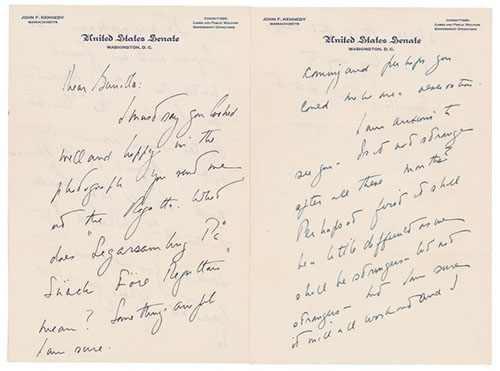 JOHN F. KENNEDY
MASSACHUSETTS
COMMITTEES:
LABOR AND PUBLIC WELFARE
GOVERNMENT OPERATIONS
United States Senate
WASHINGTON, D.C.
Dear Gunilla:
I must say you looked
well and happy in the
photograph you send me
at the Regatta. What
does "
mean? Something awful
I am sure.
JOHN F. KENNEDY
MASSACHUSETTS
COMMITTEES:
LABOR AND PUBLIC WELFARE
GOVERNMENT OPERATIONS
United States Senate
WASHINGTON, D.C.
coming and perhaps you
could make me a reservation.
I am anxious to
see you. Is it not strange
after all these months?
Perhaps at first it shall
be a little difficult as we
shall be strangers - but not
strangers - and I am sure
it will all work and I